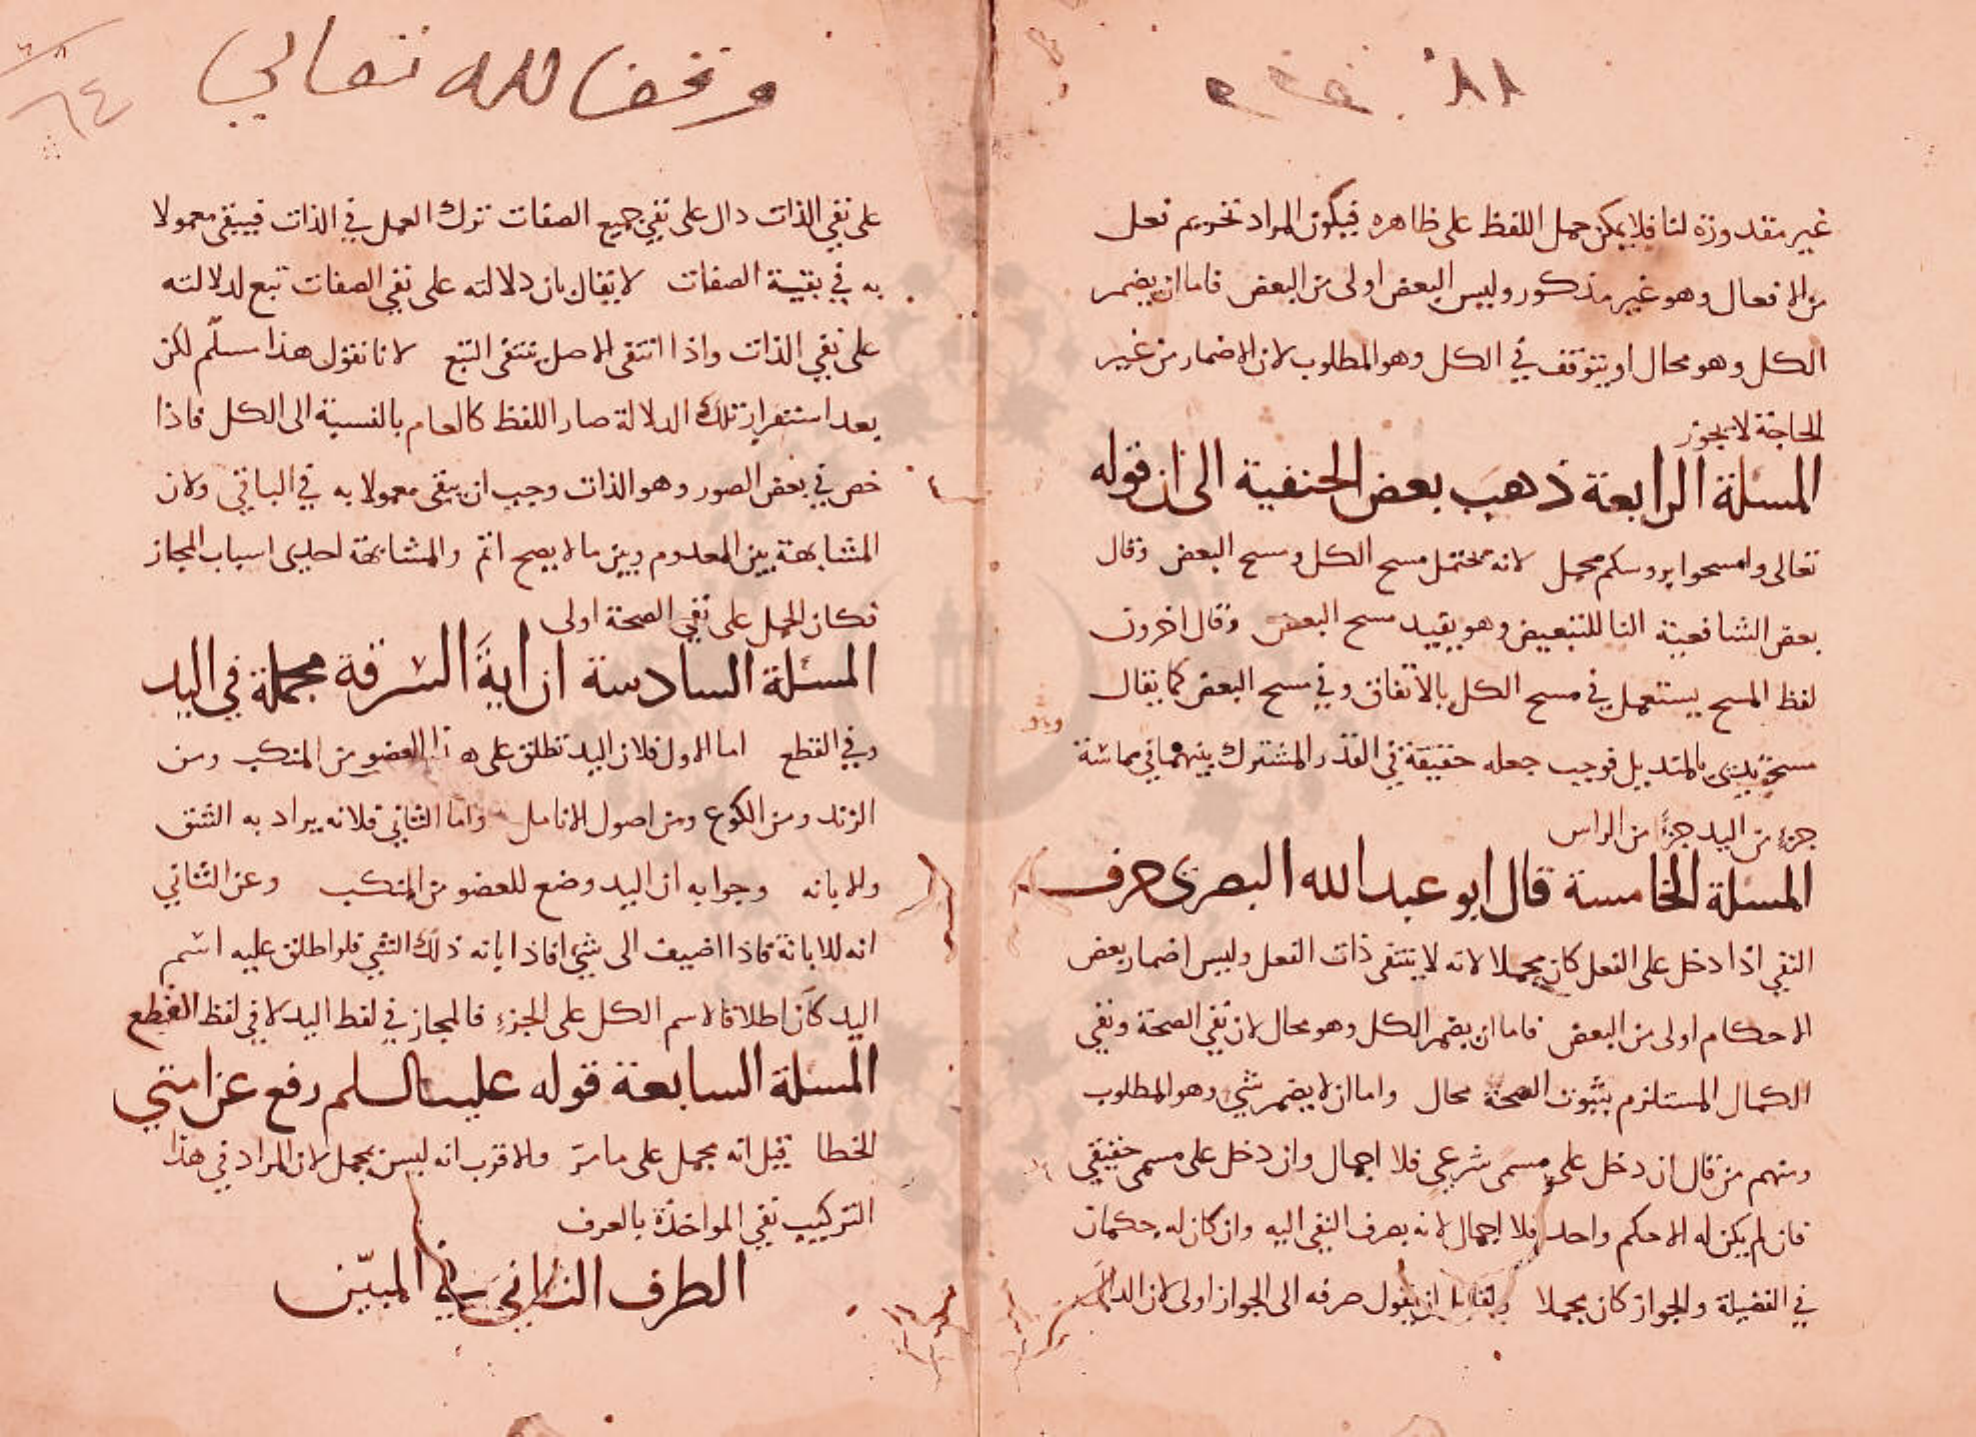 غير مقدورة لنا فلا يمكن حمل اللفظ على ظاهره فيكون المراد تحريم فعل
من الافعال وهو غير مذكور وليس البعض اولى من البعض فاما ان يضمر
الكل وهو محال او يتوقف في الكل وهو المطلوب لان الاضمار من غير
الحاجة لا يجوز
المسئلة الرابعة ذهب بعض الحنفية الى ان قوله
تعالى وامسحوا بروسكم مجمل لانه يحتمل مسح الكل ومسح البعض وقال
بعض الشافعية البا للتبعيض وهو يفيد مسح البعض وقال اخرون
لفظ المسح يستعمل في مسح الكل بالاتفاق وفي مسح البعض كما يقال
مسحت يدى بالمنديل فوجب جعله حقيقة في القدر المشترك بينهما في مماسة
جزء من اليد جزءًا من الراس
المسئلة الخامسة قال ابو عبد الله البصرى حرف
النفي اذا دخل على الفعل كان مجملا لانه لا ينتفى ذات الفعل وليس اضمار بعض
الاحكام اولى من البعض فاما ان يضمر الكل وهو محال لان نفي الصحة ونفي
الكمال المستلزم بثبوت الصحة محال واما ان لا يضمر شي وهو المطلوب
ومنهم من قال ان دخل على مسمى شرعي فلا اجمال وان دخل على مسمى حقيقي
فان لم يكن له الا حكم واحد فلا اجمال لانه يصرف النفي اليه وان كان له حكمان
في الفضيلة والجواز كان مجملا ولقايل ان يقول صرفه الى الجواز اولى لان الدالّ
وقف لله تعالى
٦٤
على نفي الذات دال على نفي جميع الصفات ترك العمل في الذات فيبقى معمولا
به في بقية الصفات لا يقال بان دلالته على نفي الصفات تبع لدلالته
على نفي الذات واذا انتفى الاصل ينتفى التبع لانا نقول هذا مسلّم لكن
بعد استقرار تلك الدلالة صار اللفظ كالعام بالنسبة الى الكل فاذا
خص في بعض الصور وهو الذات وجب ان يبقى معمولا به في الباقي ولان
المشابهة بين المعدوم وبين ما لا يصح اتم والمشابهة احدى اسباب المجاز
فكان الحمل على نفي الصحة اولى
المسئلة السادسة ان اية السرقة مجملة في اليد
وفي القطع اما الاول فلان اليد تطلق على هذا العضو من المنكب ومن
الزند ومن الكوع ومن اصول الانامل واما الثاني فلانه يراد به الشق
والابانه وجوابه ان اليد وضع للعضو من المنكب وعن الثاني
انه للابانة فاذا اضيف الى شي افاد ابانه ذلك الشي فلو اطلق عليه اسم
اليد كان اطلاقا لاسم الكل على الجزء فالمجاز في لفظ اليد لا في لفظ القطع
المسئلة السابعة قوله عليه السلم رفع عن امتي
الخطا قيل انه مجمل على ما مرّ والاقرب انه ليس بمجمل لان المراد في هذا
التركيب نفي المواخذة بالعرف
الطرف الثاني في المبيّن